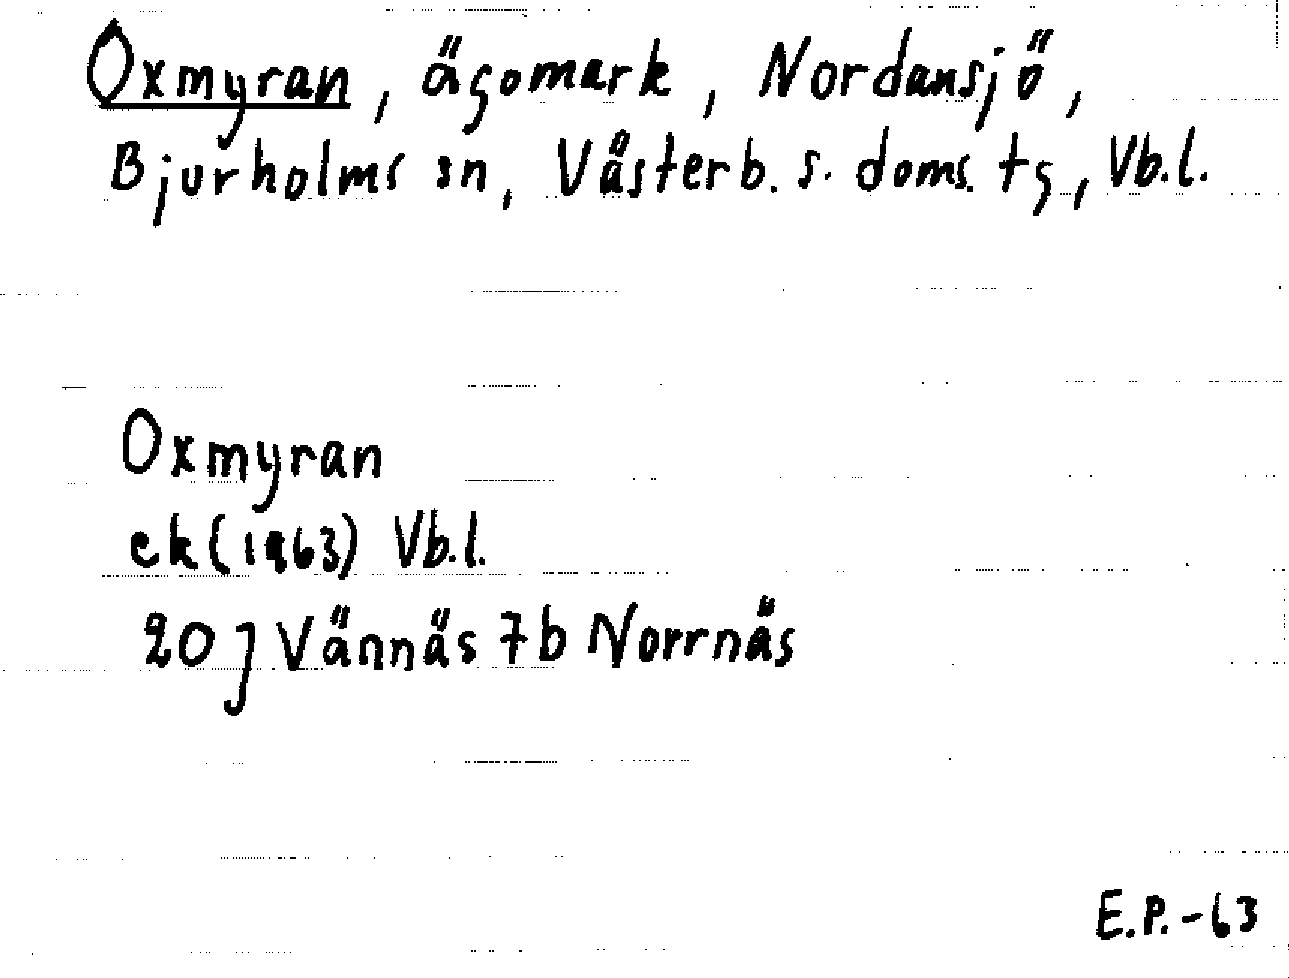 Oxmyran, ägomark, Nordansjö,
Bjurholms sn, Västerb. s. doms. tg, Vb.l.
Oxmyran
ek (1963) Vb.l.
20 J Vännäs 7b Norrnäs
E.P.-63